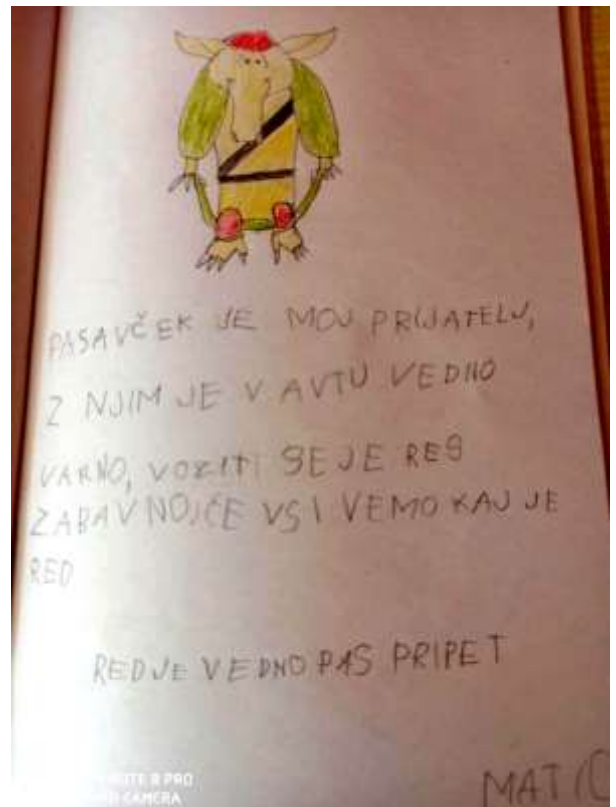 PASAVČEK JE MOJ PRIJATELJ,
Z NJIM JE V AVTU VEDNO
VARNO, VOZITI SE JE RES
ZABAVNO, ČE VSI VEMO KAJ JE
RED
RED JE VEDNO PAS PRIPET
MATIC
NOTE 8 PRO
CAMERA